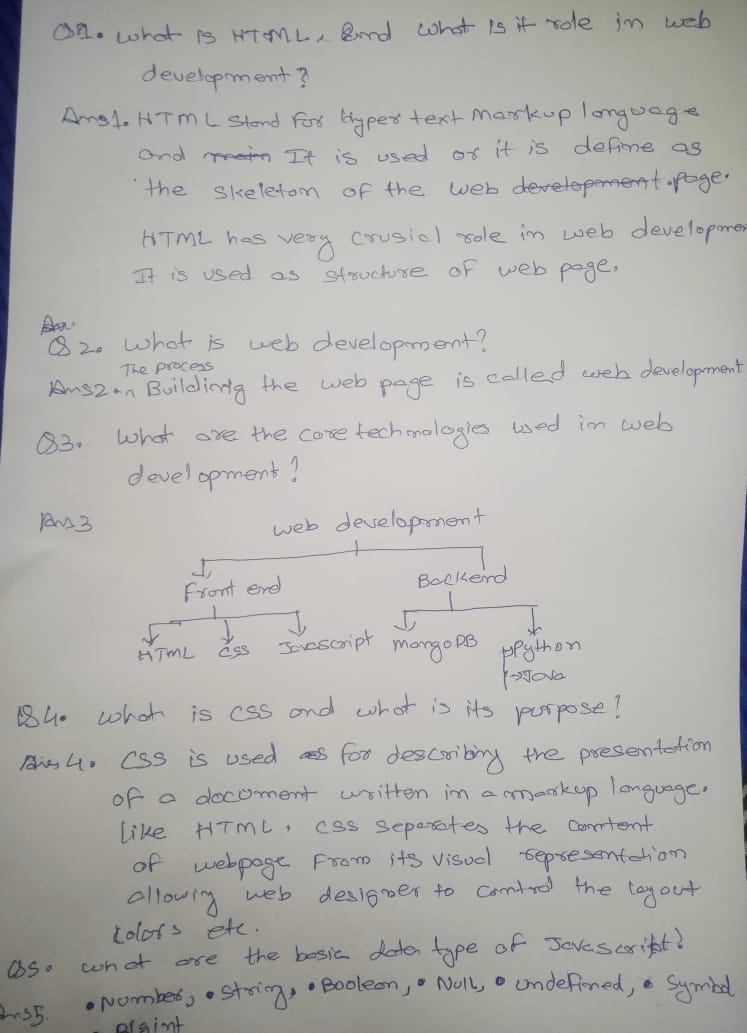 Q1. what is HTML, and what is it role in web
development?
Ans1. HTML stand for Hyper text markup language
and main It is used or it is define as
the skeleton of the web development.page.
HTML has very crusial role in web developmen
It is used as structure of web page.
Ans
Q2. what is web development?
The process
Ans2. Building the web page is called web development
Q3. what are the core technologies used in web
development?
Ans3 web development
Front end Backend
HTML CSS Javascript mongoDB Python
Java
Q4. what is CSS and what is its purpose?
Ans4. CSS is used as for describing the presentation
of a document written in a markup language.
like HTML, CSS seperates the content
of webpage from its visual representation
allowing web designer to control the layout
colors etc.
Q5. what are the basic data type of Javascript?
Ans5. • Number, • String, • Boolean, • Null, • undefined, • Symbol
• BigInt